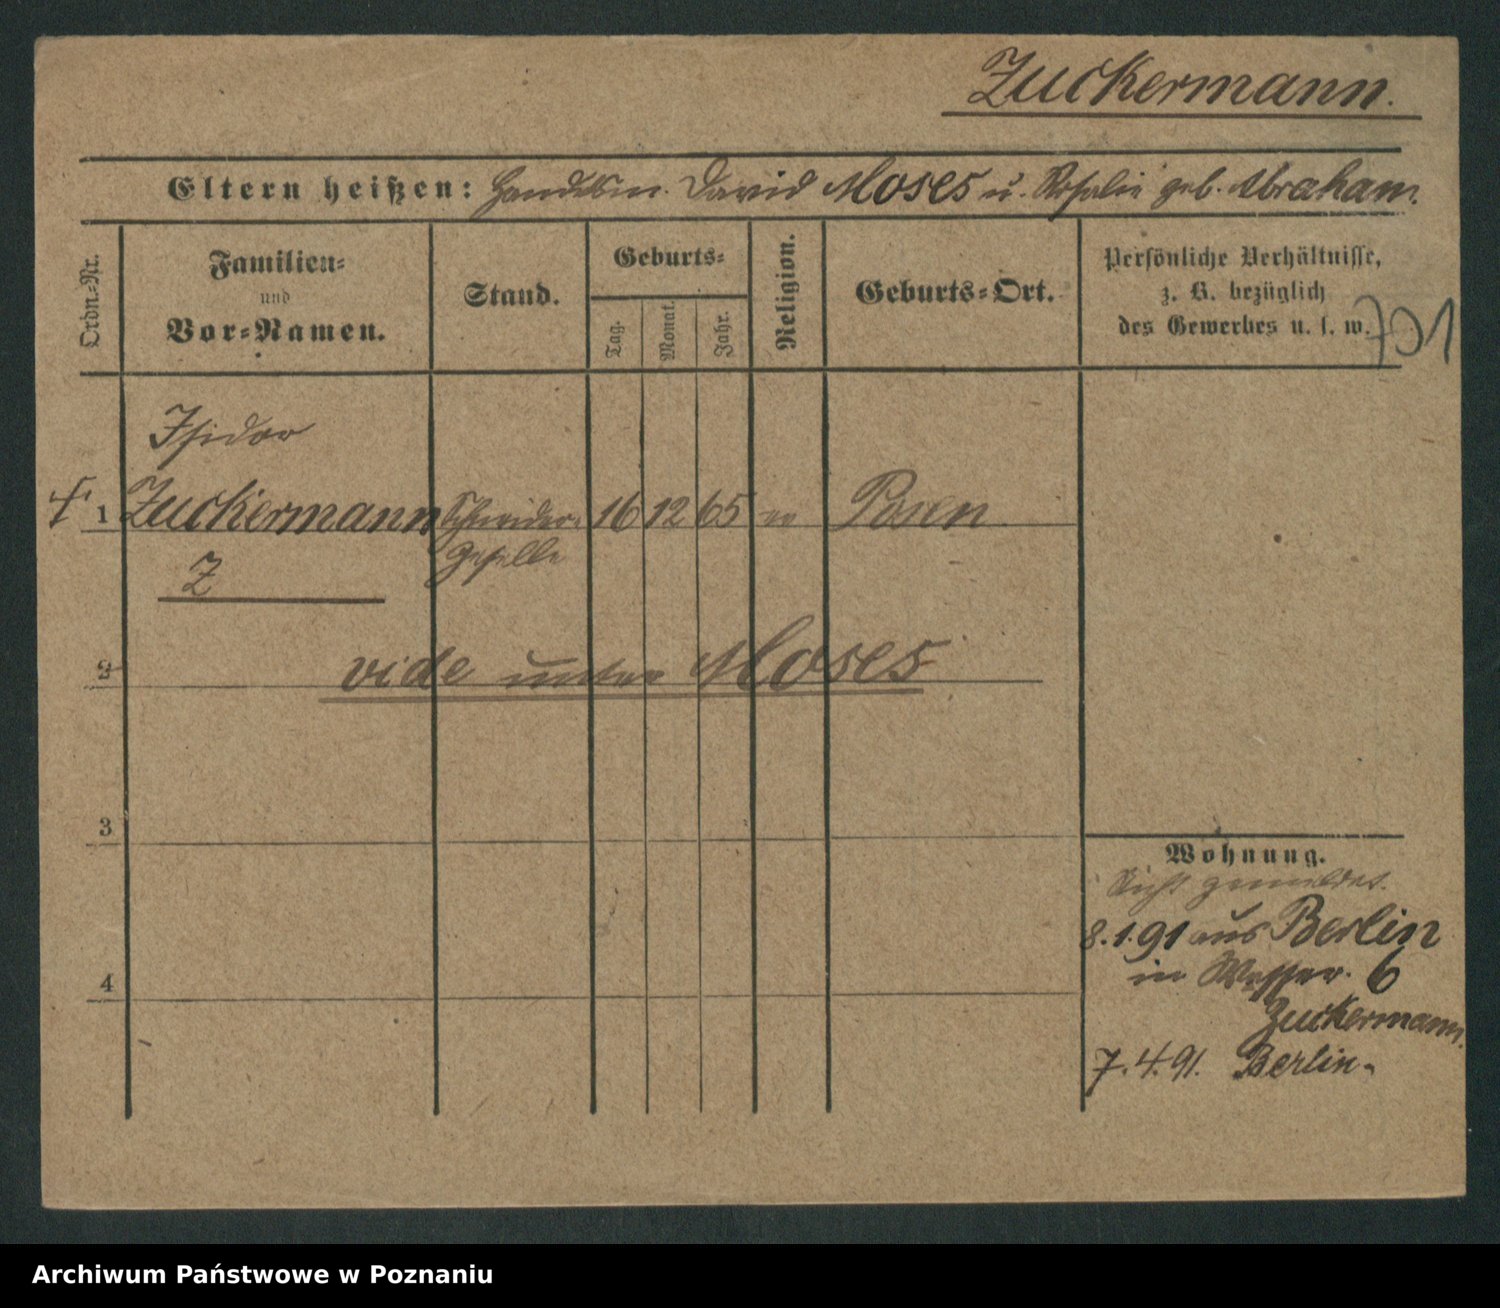 Zuckermann.
Eltern heißen: Handelsm. David Moses u. Rosalie geb. Abraham.
Ordn.-Nr.
Familien-
und
Vor-Namen.
Stand.
Geburts-
Tag.
Monat.
Jahr.
Religion.
Geburts-Ort.
Persönliche Verhältnisse,
z. B. bezüglich
des Gewerbes u. s. w.
Isidor
1 Zuckermann Schneider- 16 12 65 Posen
Z Geselle
2 vide unter Moses
3
4
Wohnung.
Nicht gemeldet.
8.1.91 aus Berlin
in Wasser. 6
Zuckermann.
7.4.91. Berlin.
Archiwum Państwowe w Poznaniu